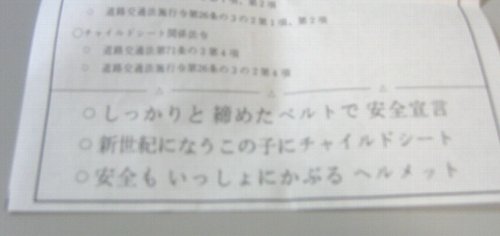 ○ 道路交通法施行令第26条の3の2第1項、第2項
○チャイルドシート関係法令
○ 道路交通法第71条の3第4項
○ 道路交通法施行令第26条の3の2第4項
○しっかりと 締めたベルトで 安全宣言
○新世紀になうこの子にチャイルドシート
○安全も いっしょにかぶる ヘルメット